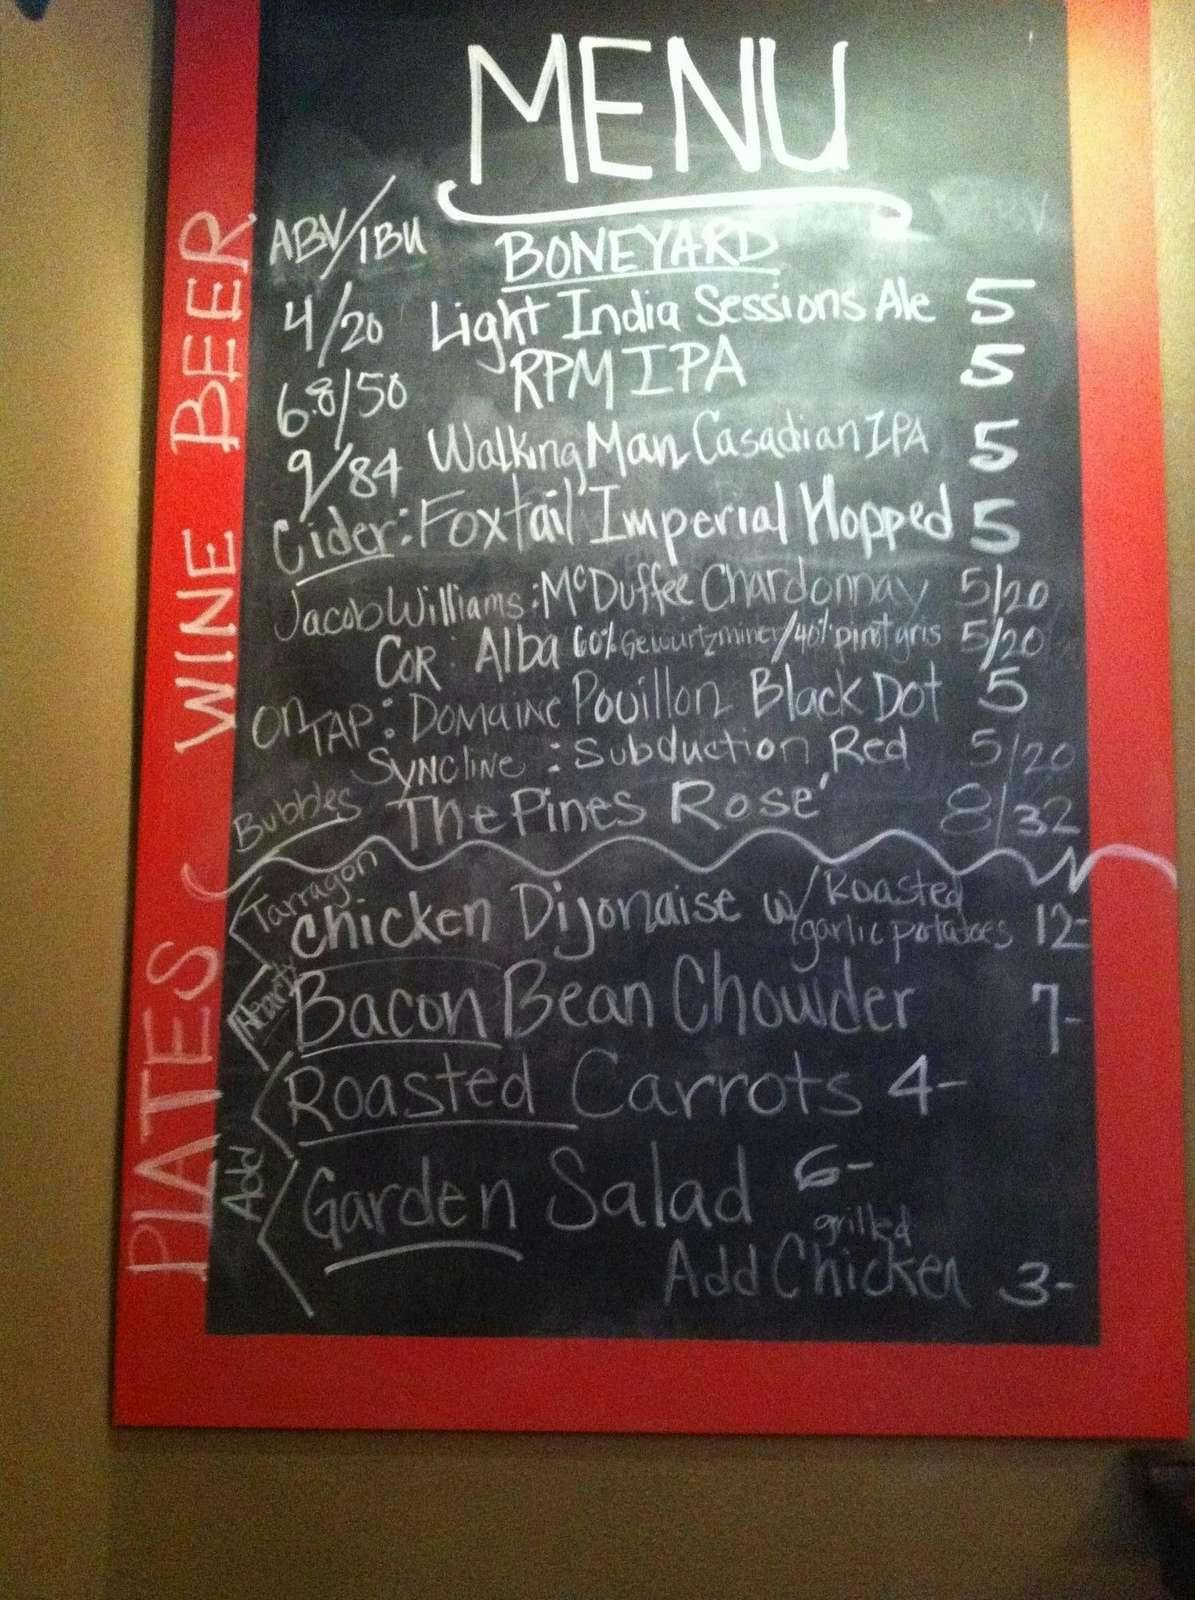 MENU
BEER
WINE
PLATES
ABV/IBU BONEYARD
4/20 Light India Sessions Ale 5
6.8/50 RPM IPA 5
9/84 Walking Man Casadian IPA 5
Cider: Foxtail Imperial Hopped 5
Jacob Williams: McDuffee Chardonnay 5/20
COR: Alba 60% Gewurtzminer/40% pinot gris 5/20
ON TAP: Domaine Pouillon Black Dot 5
Syncline: Subduction Red 5/20
Bubbles The Pines Rosé 8/32
Tarragon
Chicken Dijonaise w/ Roasted garlic potatoes 12-
Hearty Bacon Bean Chowder 7-
Roasted Carrots 4-
Add
Garden Salad 6-
Add grilled Chicken 3-